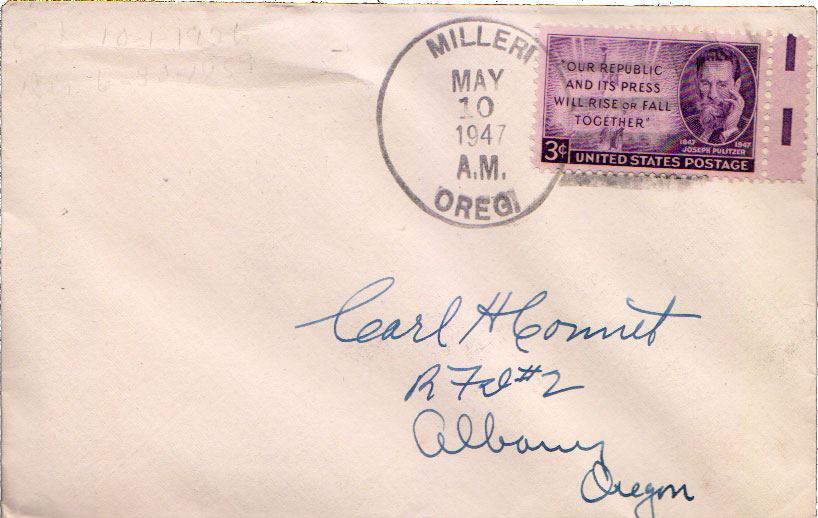 MILLER
MAY
10
1947
A.M.
OREG
"OUR REPUBLIC
AND ITS PRESS
WILL RISE OR FALL
TOGETHER"
1847 1947
JOSEPH PULITZER
3¢ UNITED STATES POSTAGE
Carl H Connet
R Fd #2
Albany
Oregon